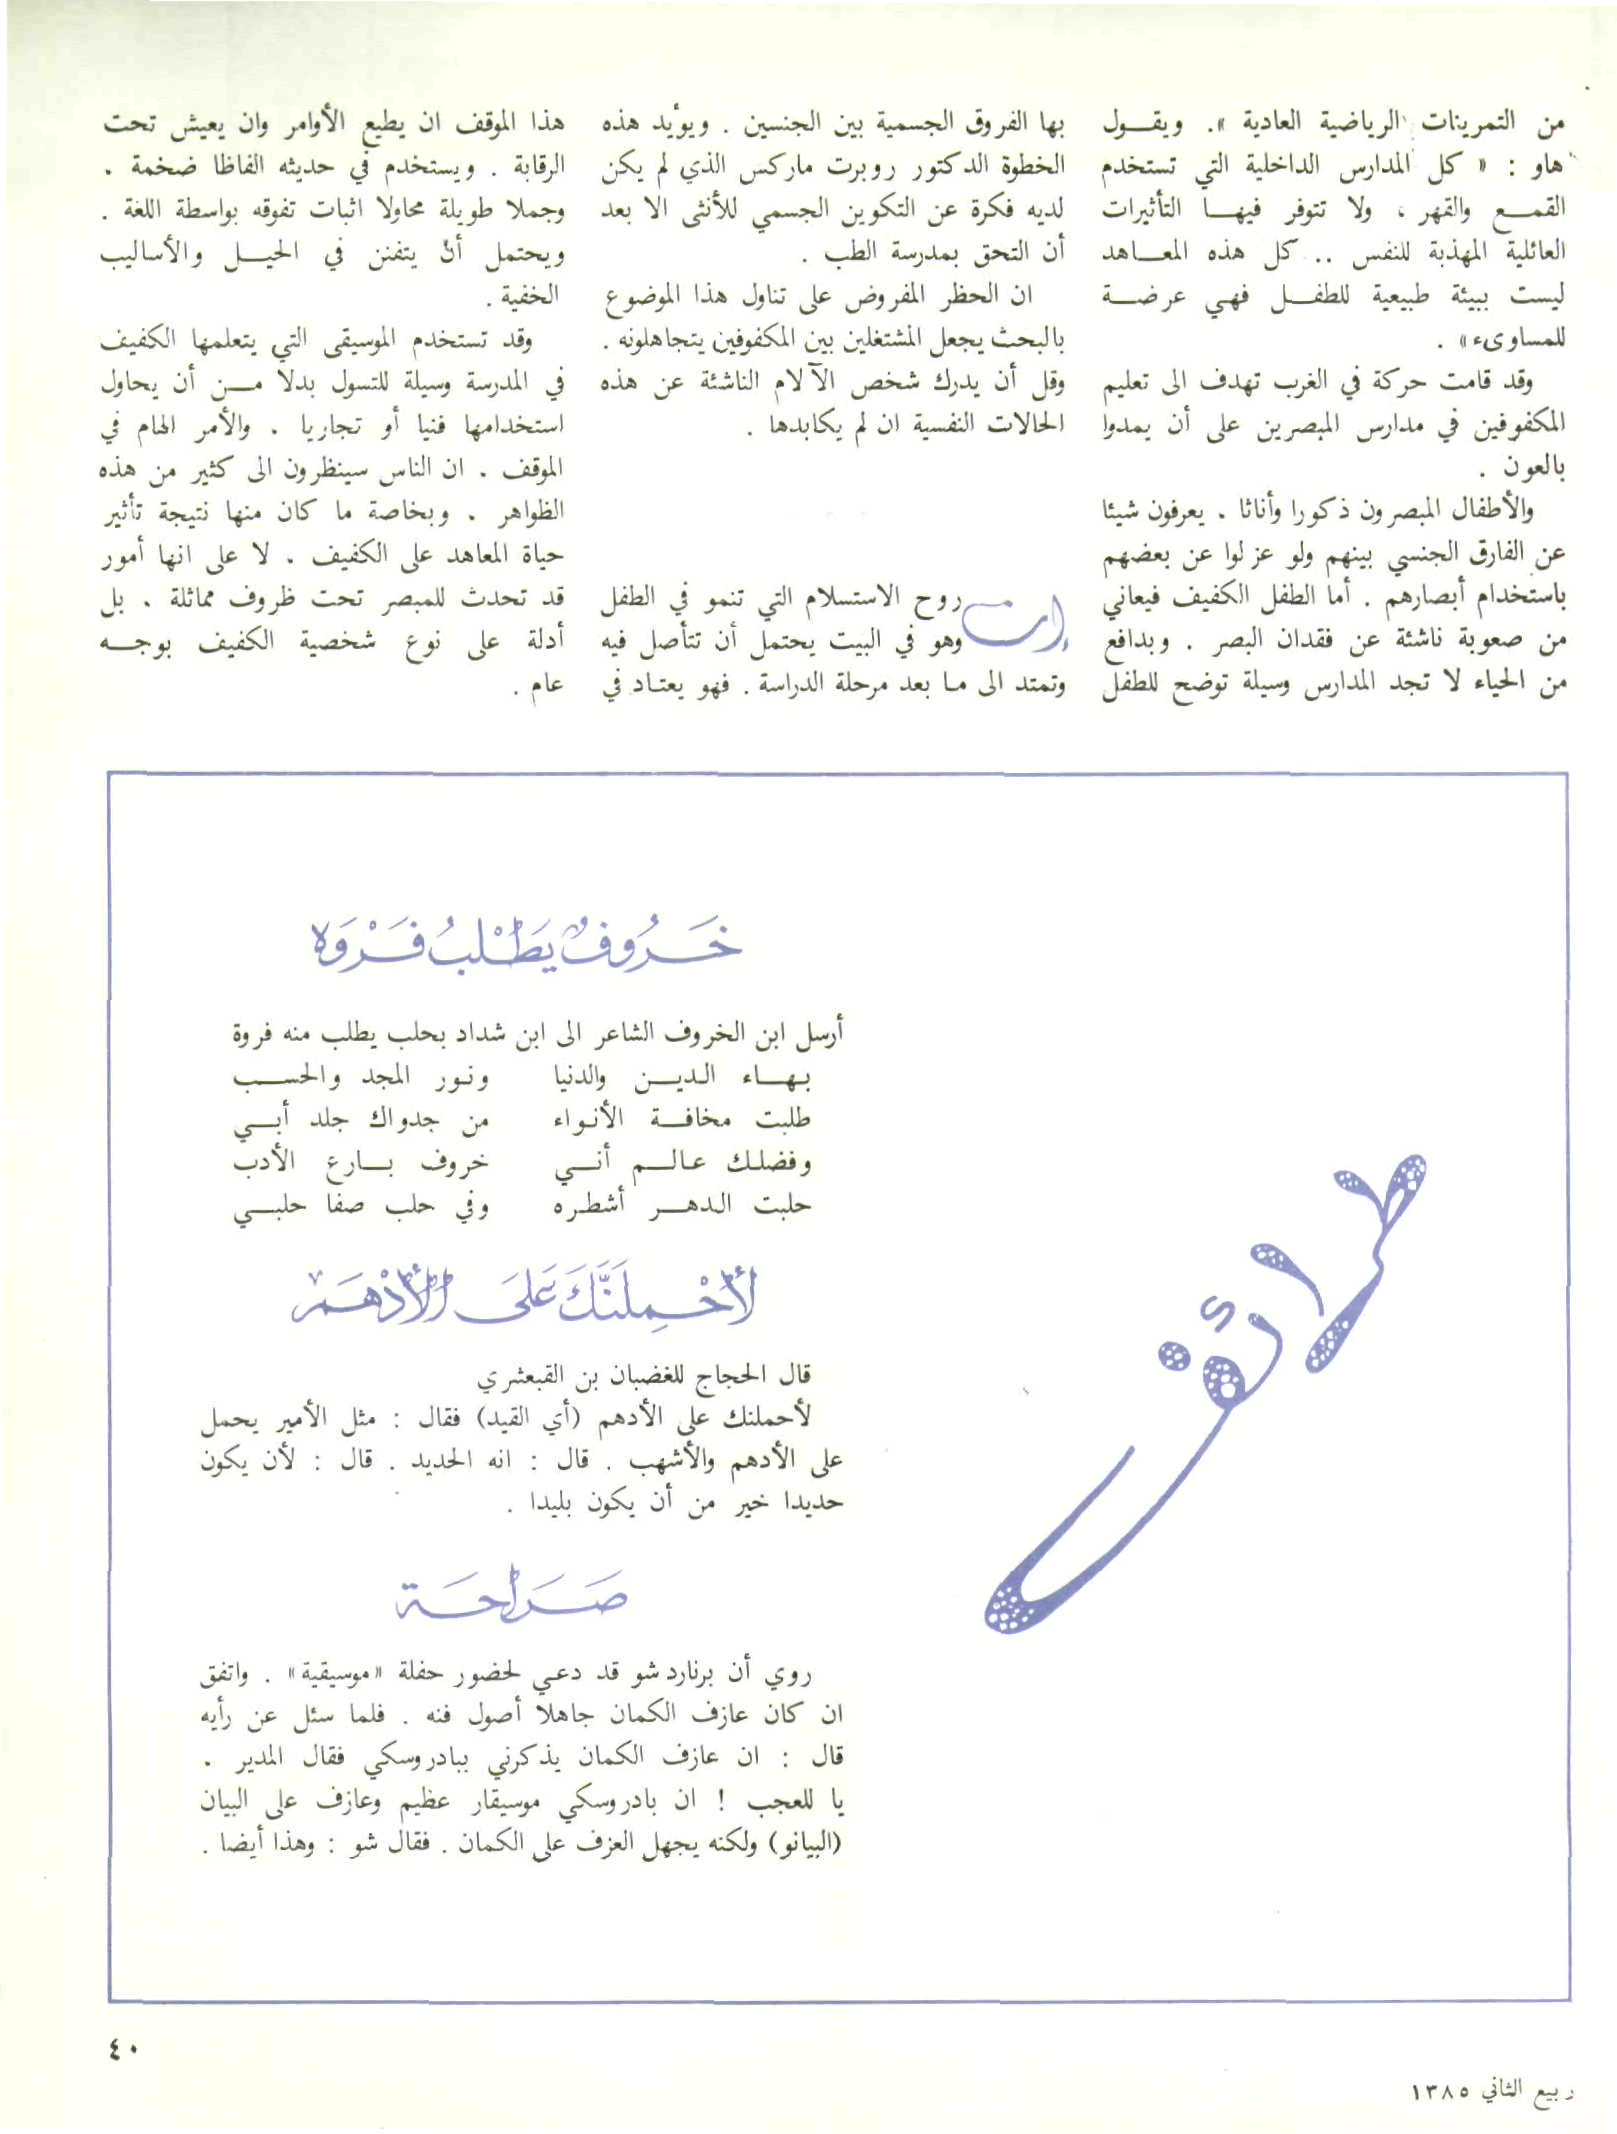 من التمرينات الرياضية العادية ». ويقـــول
هاو : « كل المدارس الداخلية التي تستخدم
القمـــع والقهر ، ولا تتوفر فيهـــا التأثيرات
العائلية المهذبة للنفس .. كل هذه المعـــاهد
ليست ببيئة طبيعية للطفـــل فهي عرضـــة
للمساوىء» .
وقد قامت حركة في الغرب تهدف الى تعليم
المكفوفين في مدارس المبصرين على أن يمدوا
بالعون .
والأطفال المبصرون ذكورا وأناثا . يعرفون شيئا
عن الفارق الجنسي بينهم ولو عزلوا عن بعضهم
باستخدام أبصارهم . أما الطفل الكفيف فيعاني
من صعوبة ناشئة عن فقدان البصر . وبدافع
من الحياء لا تجد المدارس وسيلة توضح للطفل
بها الفروق الجسمية بين الجنسين . ويؤيد هذه
الخطوة الدكتور روبرت ماركس الذي لم يكن
لديه فكرة عن التكوين الجسمي للأنثى الا بعد
أن التحق بمدرسة الطب .
ان الحظر المفروض على تناول هذا الموضوع
بالبحث يجعل المشتغلين بين المكفوفين يتجاهلونه .
وقل أن يدرك شخص الآلام الناشئة عن هذه
الحالات النفسية ان لم يكابدها .
إن روح الاستسلام التي تنمو في الطفل
وهو في البيت يحتمل أن تتأصل فيه
وتمتد الى ما بعد مرحلة الدراسة . فهو يعتاد في
هذا الموقف ان يطيع الأوامر وان يعيش تحت
الرقابة . ويستخدم في حديثه الفاظا ضخمة .
وجملا طويلة محاولا اثبات تفوقه بواسطة اللغة .
ويحتمل أن يتفنن في الحيـــل والأساليب
الخفية .
وقد تستخدم الموسيقى التي يتعلمها الكفيف
في المدرسة وسيلة للتسول بدلا مـــن أن يحاول
استخدامها فنيا أو تجاريا . والأمر الهام في
الموقف . ان الناس سينظرون الى كثير من هذه
الظواهر . وبخاصة ما كان منها نتيجة تأثير
حياة المعاهد على الكفيف . لا على انها أمور
قد تحدث للمبصر تحت ظروف مماثلة . بل
أدلة على نوع شخصية الكفيف بوجـــه
عام .
طرائف
خَروفٌ يَطْلبُ فَرْوَه
أرسل ابن الخروف الشاعر الى ابن شداد بحلب يطلب منه فروة
بهـــاء الديـــن والدنيا ونور المجد والحســـب
طلبت مخافـــة الأنواء من جدواك جلد أبـــي
وفضلك عالـــم أنـــي خروف بـــارع الأدب
حلبت الدهـــر أشطره وفي حلب صفا حلبـــي
لأَحْمِلَنَّكَ عَلَى الأَدْهَم
قال الحجاج للغضبان بن القبعثري
لأحملنك على الأدهم (أي القيد) فقال : مثل الأمير يحمل
على الأدهم والأشهب . قال : انه الحديد . قال : لأن يكون
حديدا خير من أن يكون بليدا .
صَرَاحَة
روي أن برنارد شو قد دعي لحضور حفلة «موسيقية» . واتفق
ان كان عازف الكمان جاهلا أصول فنه . فلما سئل عن رأيه
قال : ان عازف الكمان يذكرني ببادروسكي فقال المدير .
يا للعجب ! ان بادروسكي موسيقار عظيم وعازف على البيان
(البيانو) ولكنه يجهل العزف على الكمان . فقال شو : وهذا أيضا .
٤٠
ربيع الثاني ١٣٨٥